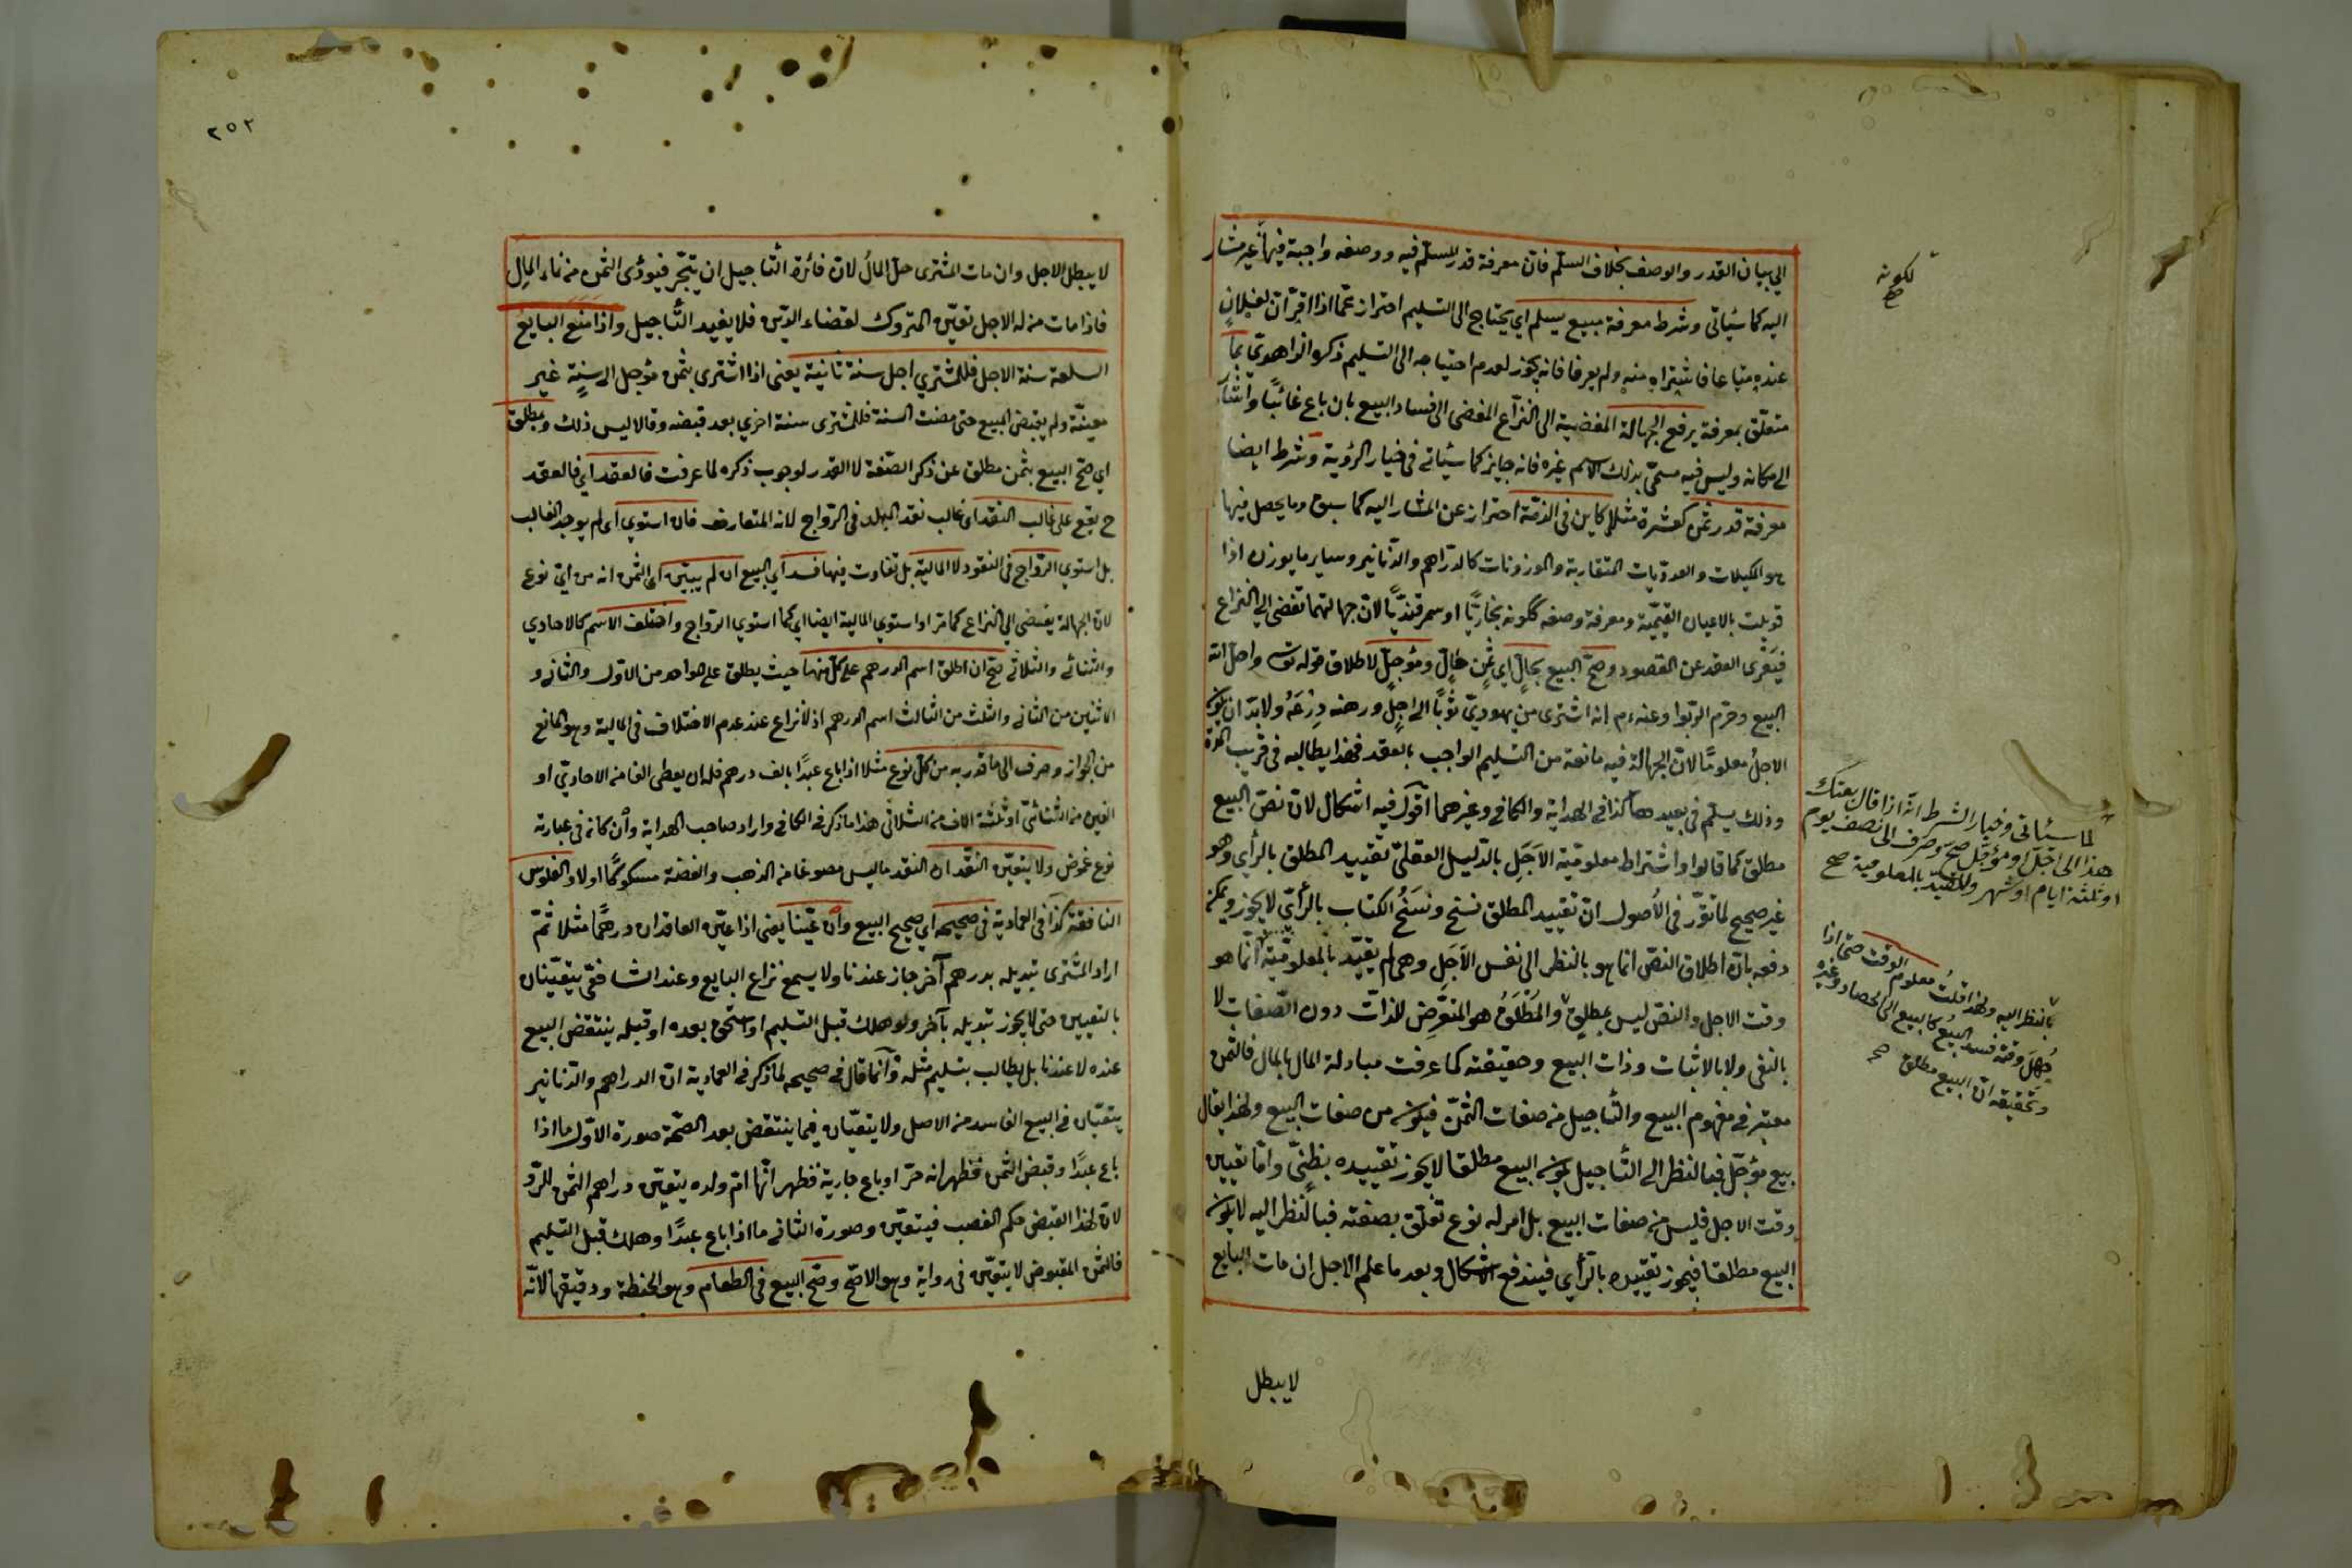 الي بيان القدر والوصف بخلاف السلم فان معرفة قدر المسلم فيه ووصفه واجبة فيها غير مشار
اليه كما سيأتي وشرط معرفة مبيع يسلم اي يحتاج الى التسليم احتراز عما اذا اقر ان لفلان
عنده متاعا فاشتراه منه ولم يعرفا فانه يجوز لعدم احتياجه الى التسليم ذكره الزاهدي بما
متعلق بمعرفة يرفع الجهالة المفضية الى النزاع المفضى الى فساد البيع بان باع غائبا واشار
الى مكانه وليس فيه مسمى بذلك الاسم غيره فانه جايز كما سيأتي في خيار الرؤية وشرط ايضا
معرفة قدر ثمن كعشرة مثلا كاين في الذمة احتراز عن المشار اليه كما سبق وما يحصل فيها
هو المكيلات والعدديات المتقاربة والموزونات كالدراهم والدنانير وساير ما يوزن اذا
قوبلت بالاعيان القيمية ومعرفة وصفه ككونه بخاريا او سمرقنديا لان جهالتهما تفضى الي النزاع
فيعرى العقد عن المقصود وصح البيع بحال اي ثمن حال ومؤجل لاطلاق قوله تعالى واحل الله
البيع وحرم الربوا وعنه عم انه اشترى من يهودي ثوبا الى اجل ورهنه درعه ولا بد ان يكون
الاجل معلوما لان الجهالة فيه مانعة من التسليم الواجب بالعقد فهذا يطالبه في قريب المدة
وذلك يسلم في بعيدها كذا في الهداية والكافي وغيرهما اقول فيه اشكال لان نص البيع
مطلق كما قالوا واشتراط معلومية الاجل بالدليل العقلي تقييد المطلق بالرأي وهو
غير صحيح لما تقرر في الأصول ان تقييد المطلق نسخ ونسخ الكتاب بالرأي لا يجوز ويمكن
دفعه بان اطلاق النص انما هو بالنظر الى نفس الاجل وهي لم يقيد بالمعلومية انما هو
وقت الاجل والنص ليس بمطلق والمطلق هو المتعرض للذات دون الصفات لا
بالنفي ولا بالاثبات وذات البيع وحقيقته كما عرفت مبادلة المال بالمال فالثمن
معتبر في مفهوم البيع والتأجيل من صفات الثمن فيكون من صفات البيع ولهذا يقال
بيع مؤجل فبالنظر الى التأجيل يكون البيع مطلقا لا يجوز تقييده بظني واما تعيين
وقت الاجل فليس من صفات البيع بل امر له نوع تعلق بصفته فبالنظر اليه لا يكون
البيع مطلقا فيجوز تقييده بالرأي فيندفع الاشكال وبعد ما علم الاجل ان مات البايع
لا يبطل
لكونه
صح
لما سيأتي في خيار الشرط انه اذا قال بعتك
هذا الى اجل او مؤجل صح وصرف الى نصف يوم
او ثلثة ايام او شهر وللتقييد بالمعلومية صح
بالنظر اليه ولهذا قلت معلوم الوقت حتى اذا
جهل وقته فسد البيع كالبيع الى الحصاد وغيره
وتحقيقه ان البيع مطلق صح
٢٥٢
لا يبطل الاجل وان مات المشترى حل المال لان فائدة التأجيل ان يتجر فيؤدى الثمن من نماء المال
فاذا مات من له الاجل تعين المتروك لقضاء الدين فلا يفيد التأجيل واذا منع البايع
السلعة سنة الاجل فللمشتري اجل سنة ثانية يعني اذا اشترى بثمن مؤجل الى سنة غير
معينة ولم يقبض المبيع حتى مضت السنة فللمشترى سنة اخري بعد قبضه وقالا ليس ذلك وبمطلق
اي صح البيع بثمن مطلق عن ذكر الصفة لا القدر لوجوب ذكره لما عرفت فالعقد اي فالعقد
ح يقع على غالب النقد اي غالب نقد البلد في الرواج لانه المتعارف فان استوي اي لم يوجد الغالب
بل استوي الرواج في النقود لا المالية بل تفاوت فيها فسد اي البيع ان لم يبين اي الثمن انه من اي نوع
لان الجهالة يفضى الي النزاع كما مر او استوي المالية ايضا اي كما استوي الرواج واختلف الاسم كالاحادي
والثنائي والثلاثي صح ان اطلق اسم الدرهم على كل منها حيث يطلق على الواحد من الاول والثاني و
الاثنين من الثاني والثلث من الثالث اسم الدرهم اذ لا نزاع عند عدم الاختلاف في المالية وهو المانع
من الجواز وصرف الى ما قدر به من كل نوع مثلا اذا باع عبدا بالف درهم فله ان يعطى الفا من الاحادي او
الفين من الثنائي او ثلثة الاف من الثلاثي هذا ما ذكر في الكافي واراد صاحب الهداية وان كان في عبارته
نوع غموض ولا يتعين النقد ان النقد ما ليس مصوغا من الذهب والفضة مسكوكا اولا والفلوس
النافقة كذا في العمادية في صحيحه اي صحيح البيع وان عينا يعنى اذا عين العاقدان درهما مثلا ثم
اراد المشترى تبديله بدرهم آخر جاز عندنا ولا يسمع نزاع البايع وعند الشافعي يتعينان
بالتعيين حتى لا يجوز تبديله بآخر ولو هلك قبل التسليم او استحق بعده او قبله ينتقض البيع
عنده لا عندنا بل يطالب بتسليم مثله وانما قال في صحيحه لما ذكر في العمادية ان الدراهم والدنانير
يتعينان في البيع الفاسد من الاصل ولا يتعينان فيما ينتقض بعد الصحة صورة الاول ما اذا
باع عبدا وقبض الثمن فظهر انه حر او باع جارية فظهر انها ام ولده يتعين دراهم الثمن للرد
لان لهذا القبض حكم الغصب فيتعين وصورة الثاني ما اذا باع عبدا وهلك قبل التسليم
فالثمن المقبوض لا يتعين في رواية وهو الاصح وصح البيع في الطعام وهو الحنطة ودقيقها لانه